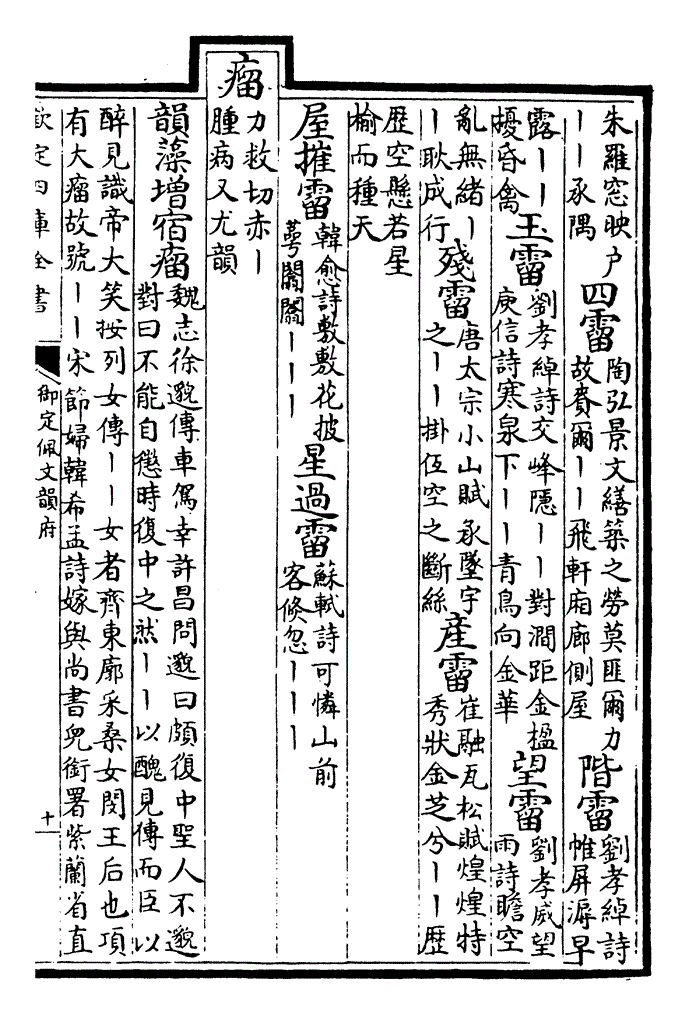 朱羅窓映户
丨丨承隅
四霤
陶弘景文繕築之勞莫匪爾力
故賚爾丨丨飛軒廂廊側屋
階霤
劉孝綽詩
帷屏溽早
露丨丨
擾昏禽
玉霤
劉孝綽詩交峰隱丨丨對澗距金楹
庾信詩寒泉下丨丨青鳥向金華
望霤
劉孝威望
雨詩瞻空
亂無緒丨
丨耿成行
殘霤
唐太宗小山賦承墜宇
之丨丨掛仾空之斷絲
產霤
崔融瓦松賦煌煌特
秀狀金芝兮丨丨歷
歷空懸若星
榆而種天
屋摧霤
韓愈詩敷敷花披
萼闟闟丨丨丨
星過霤
蘇軾詩可憐山前
客倏忽丨丨丨
瘤
力救切赤丨
腫病又尤韻
韻藻增宿瘤
魏志徐邈傳車駕幸許昌問邈曰頗復中聖人不邈
對曰不能自懲時復中之然丨丨以醜見傳而臣以
醉見識帝大笑按列女傳丨丨女者齊東廓采桑女閔王后也項
有大瘤故號丨丨宋節婦韓希孟詩嫁與尚書兒銜署紫蘭省直
欽定四庫全書
御定佩文韻府
十